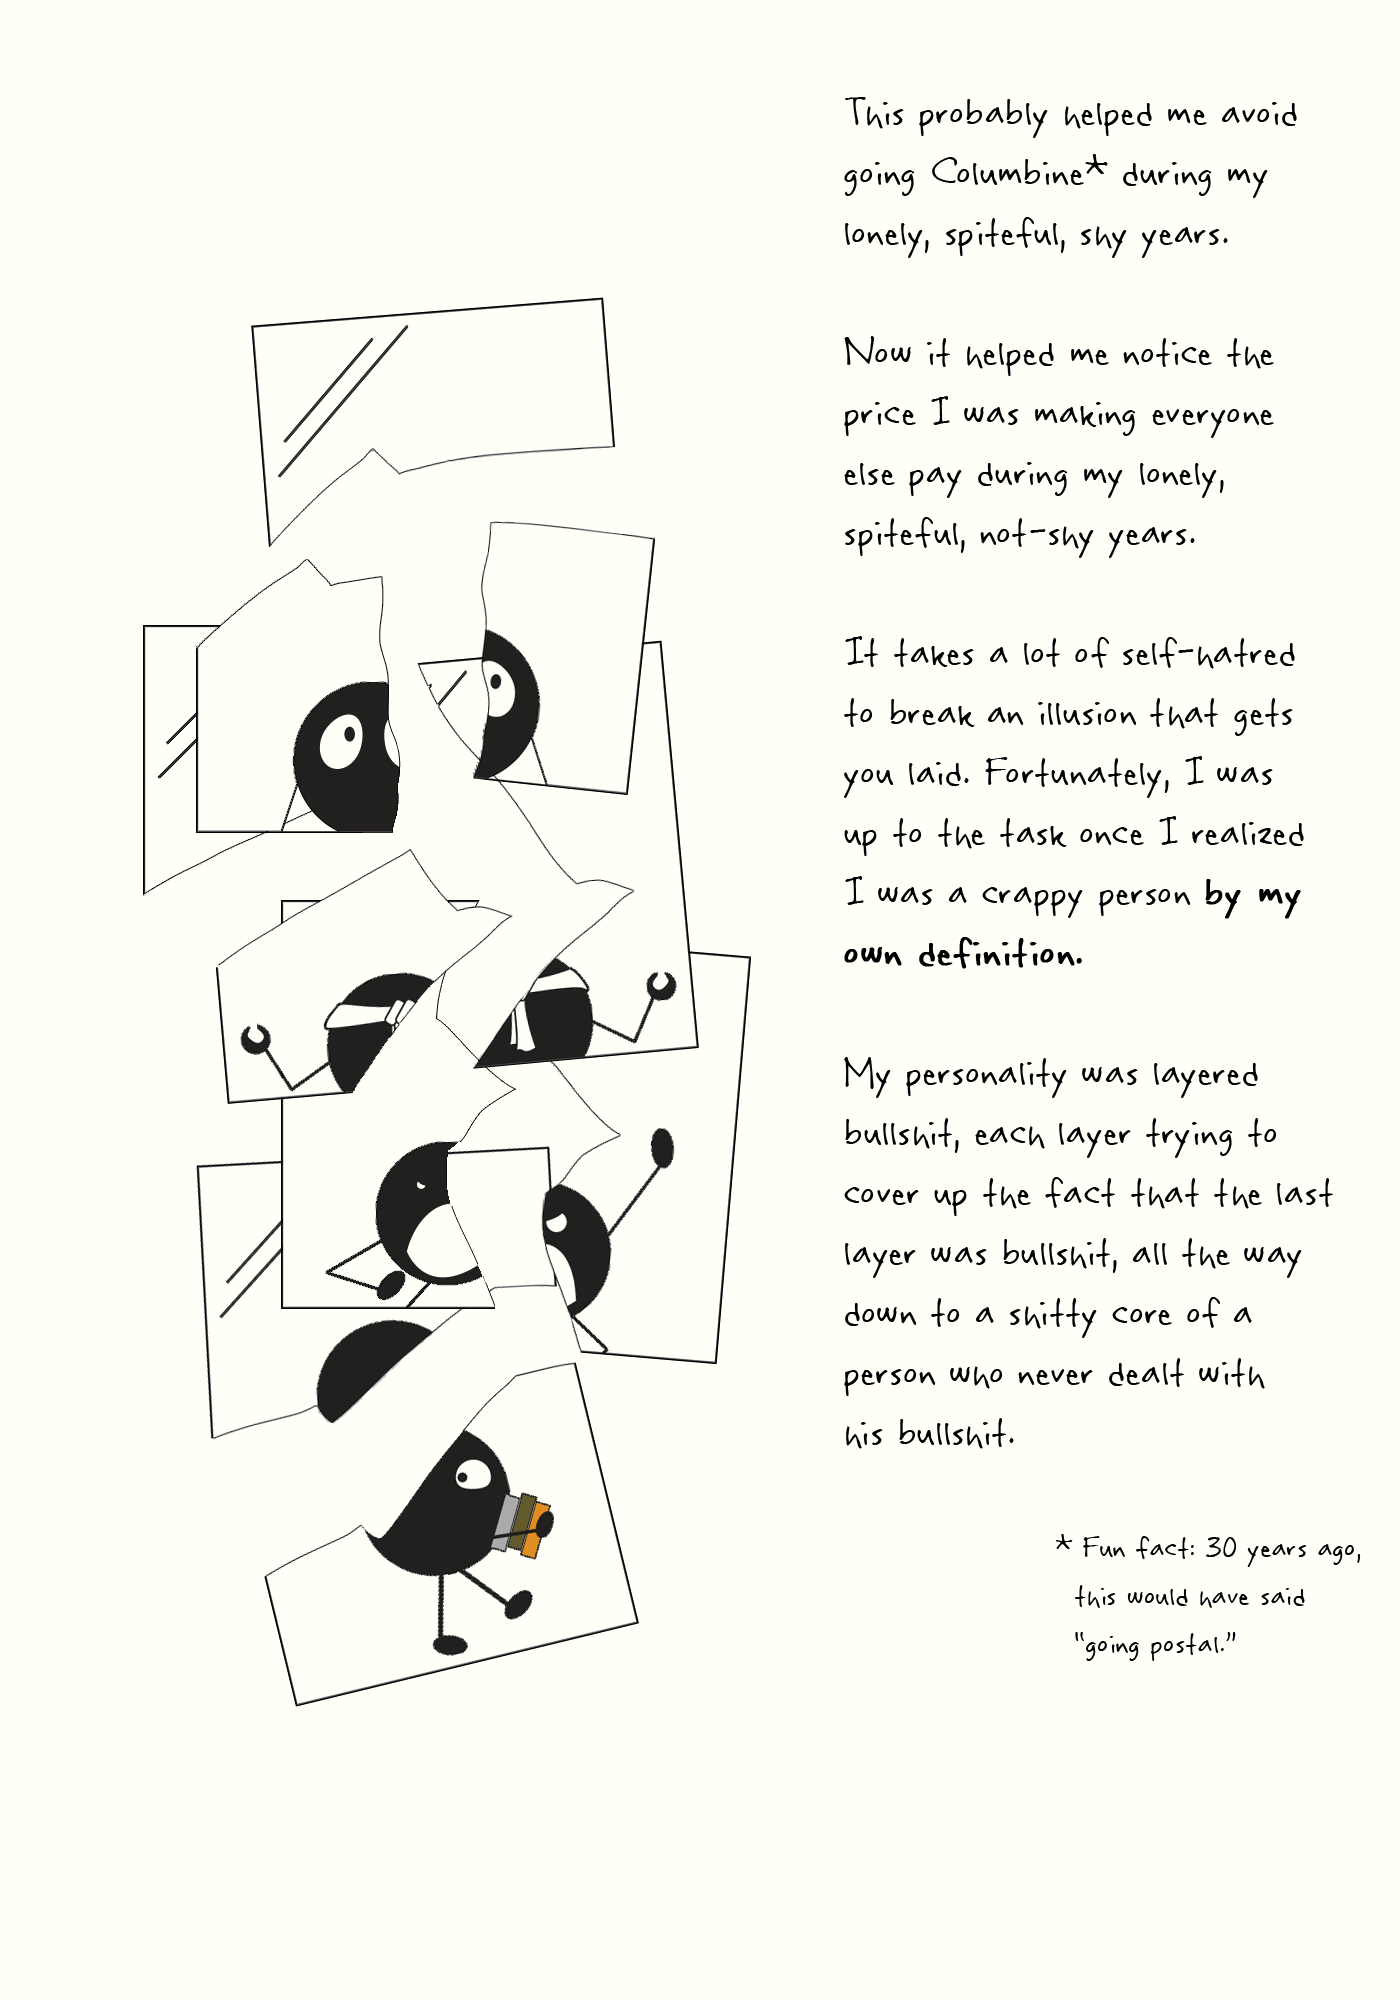 This probably helped me avoid
going Columbine* during my
lonely, spiteful, shy years.
Now it helped me notice the
price I was making everyone
else pay during my lonely,
spiteful, not-shy years.
It takes a lot of self-hatred
to break an illusion that gets
you laid. Fortunately, I was
up to the task once I realized
I was a crappy person by my
own definition.
My personality was layered
bullshit, each layer trying to
cover up the fact that the last
layer was bullshit, all the way
down to a shitty core of a
person who never dealt with
his bullshit.
* Fun fact: 30 years ago,
this would have said
"going postal."